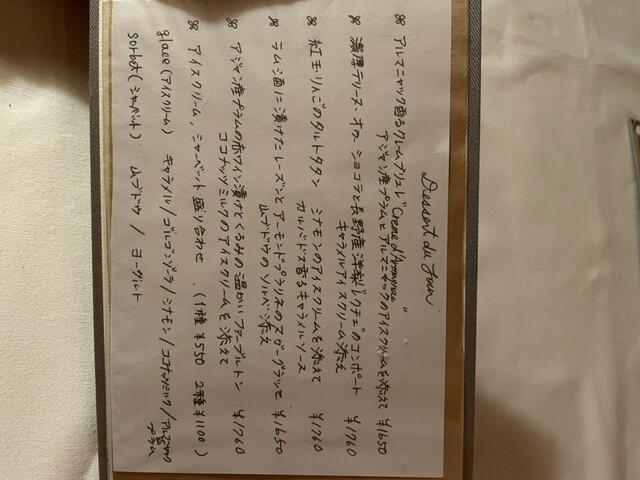 Dessert du Jour
⌘ アルマニャック香るクレームブリュレ "Crème d'Armagnac"
アジャン産プラムとアルマニャックのアイスクリームを添えて ¥1650
⌘ 濃厚テリーヌ・オ・ショコラと長野産洋梨"レクチェ"のコンポート
キャラメルアイスクリーム添え ¥1760
⌘ 紅玉りんごのタルトタタン シナモンのアイスクリームを添えて
カルバドス香るキャラメルソース ¥1760
⌘ ラム酒に漬けたレーズンとアーモンドプラリネのヌガーグラッセ
山ブドウのソルベ添え ¥1650
⌘ アジャン産プラムの赤ワイン漬けとくるみの温かいファーブルトン
ココナッツミルクのアイスクリームを添えて ¥1760
⌘ アイスクリーム、シャーベット盛り合わせ (1種 ¥550 2種 ¥1100)
glace (アイスクリーム) キャラメル / ゴルゴンゾーラ / シナモン / ココナッツミルク / アルマニャック
プラム
sorbet (シャーベット) 山ブドウ / ヨーグルト